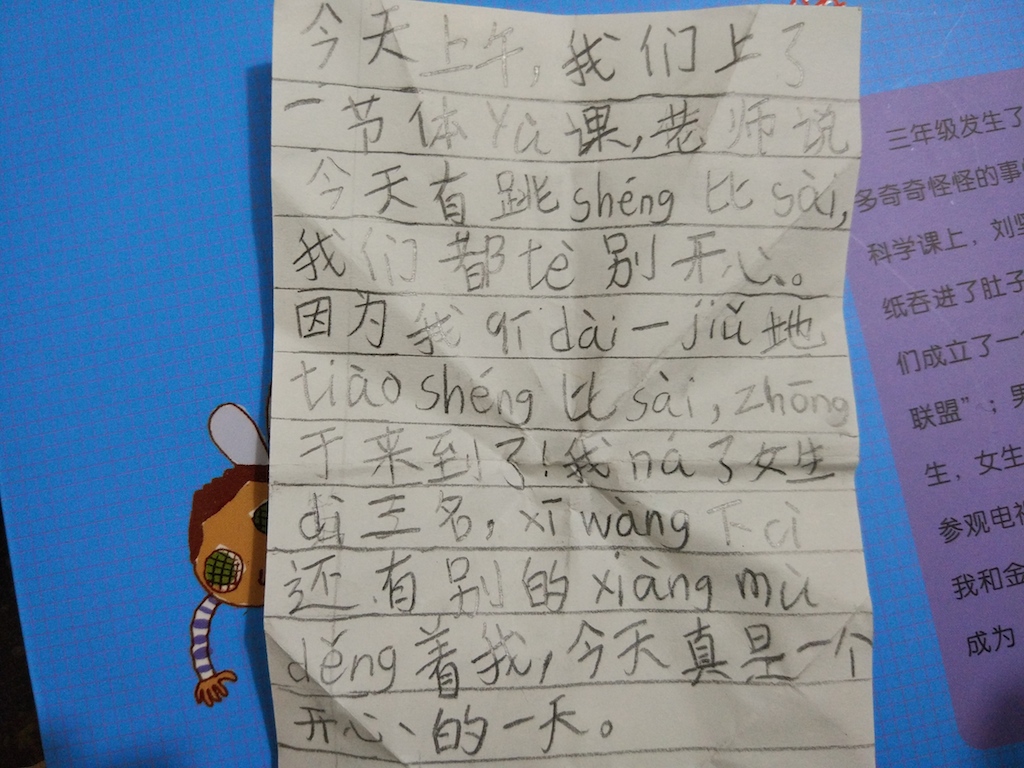 今天上午,我们上了
一节体Yù课,老师说
今天有跳shéng比sài,
我们都tè别开心。
因为我qī dài一jiǔ地
tiào shéng比sài,zhōng
于来到了!我ná了女生
dì三名,xī wàng下cì
还有别的xiàng mù
děng着我,今天真是一个
开心的一天。
三年级发生了
多奇奇怪怪的事
科学课上,刘
纸吞进了肚子
们成立了一
联盟”;男
生,女生
参观电视
我和金
成为